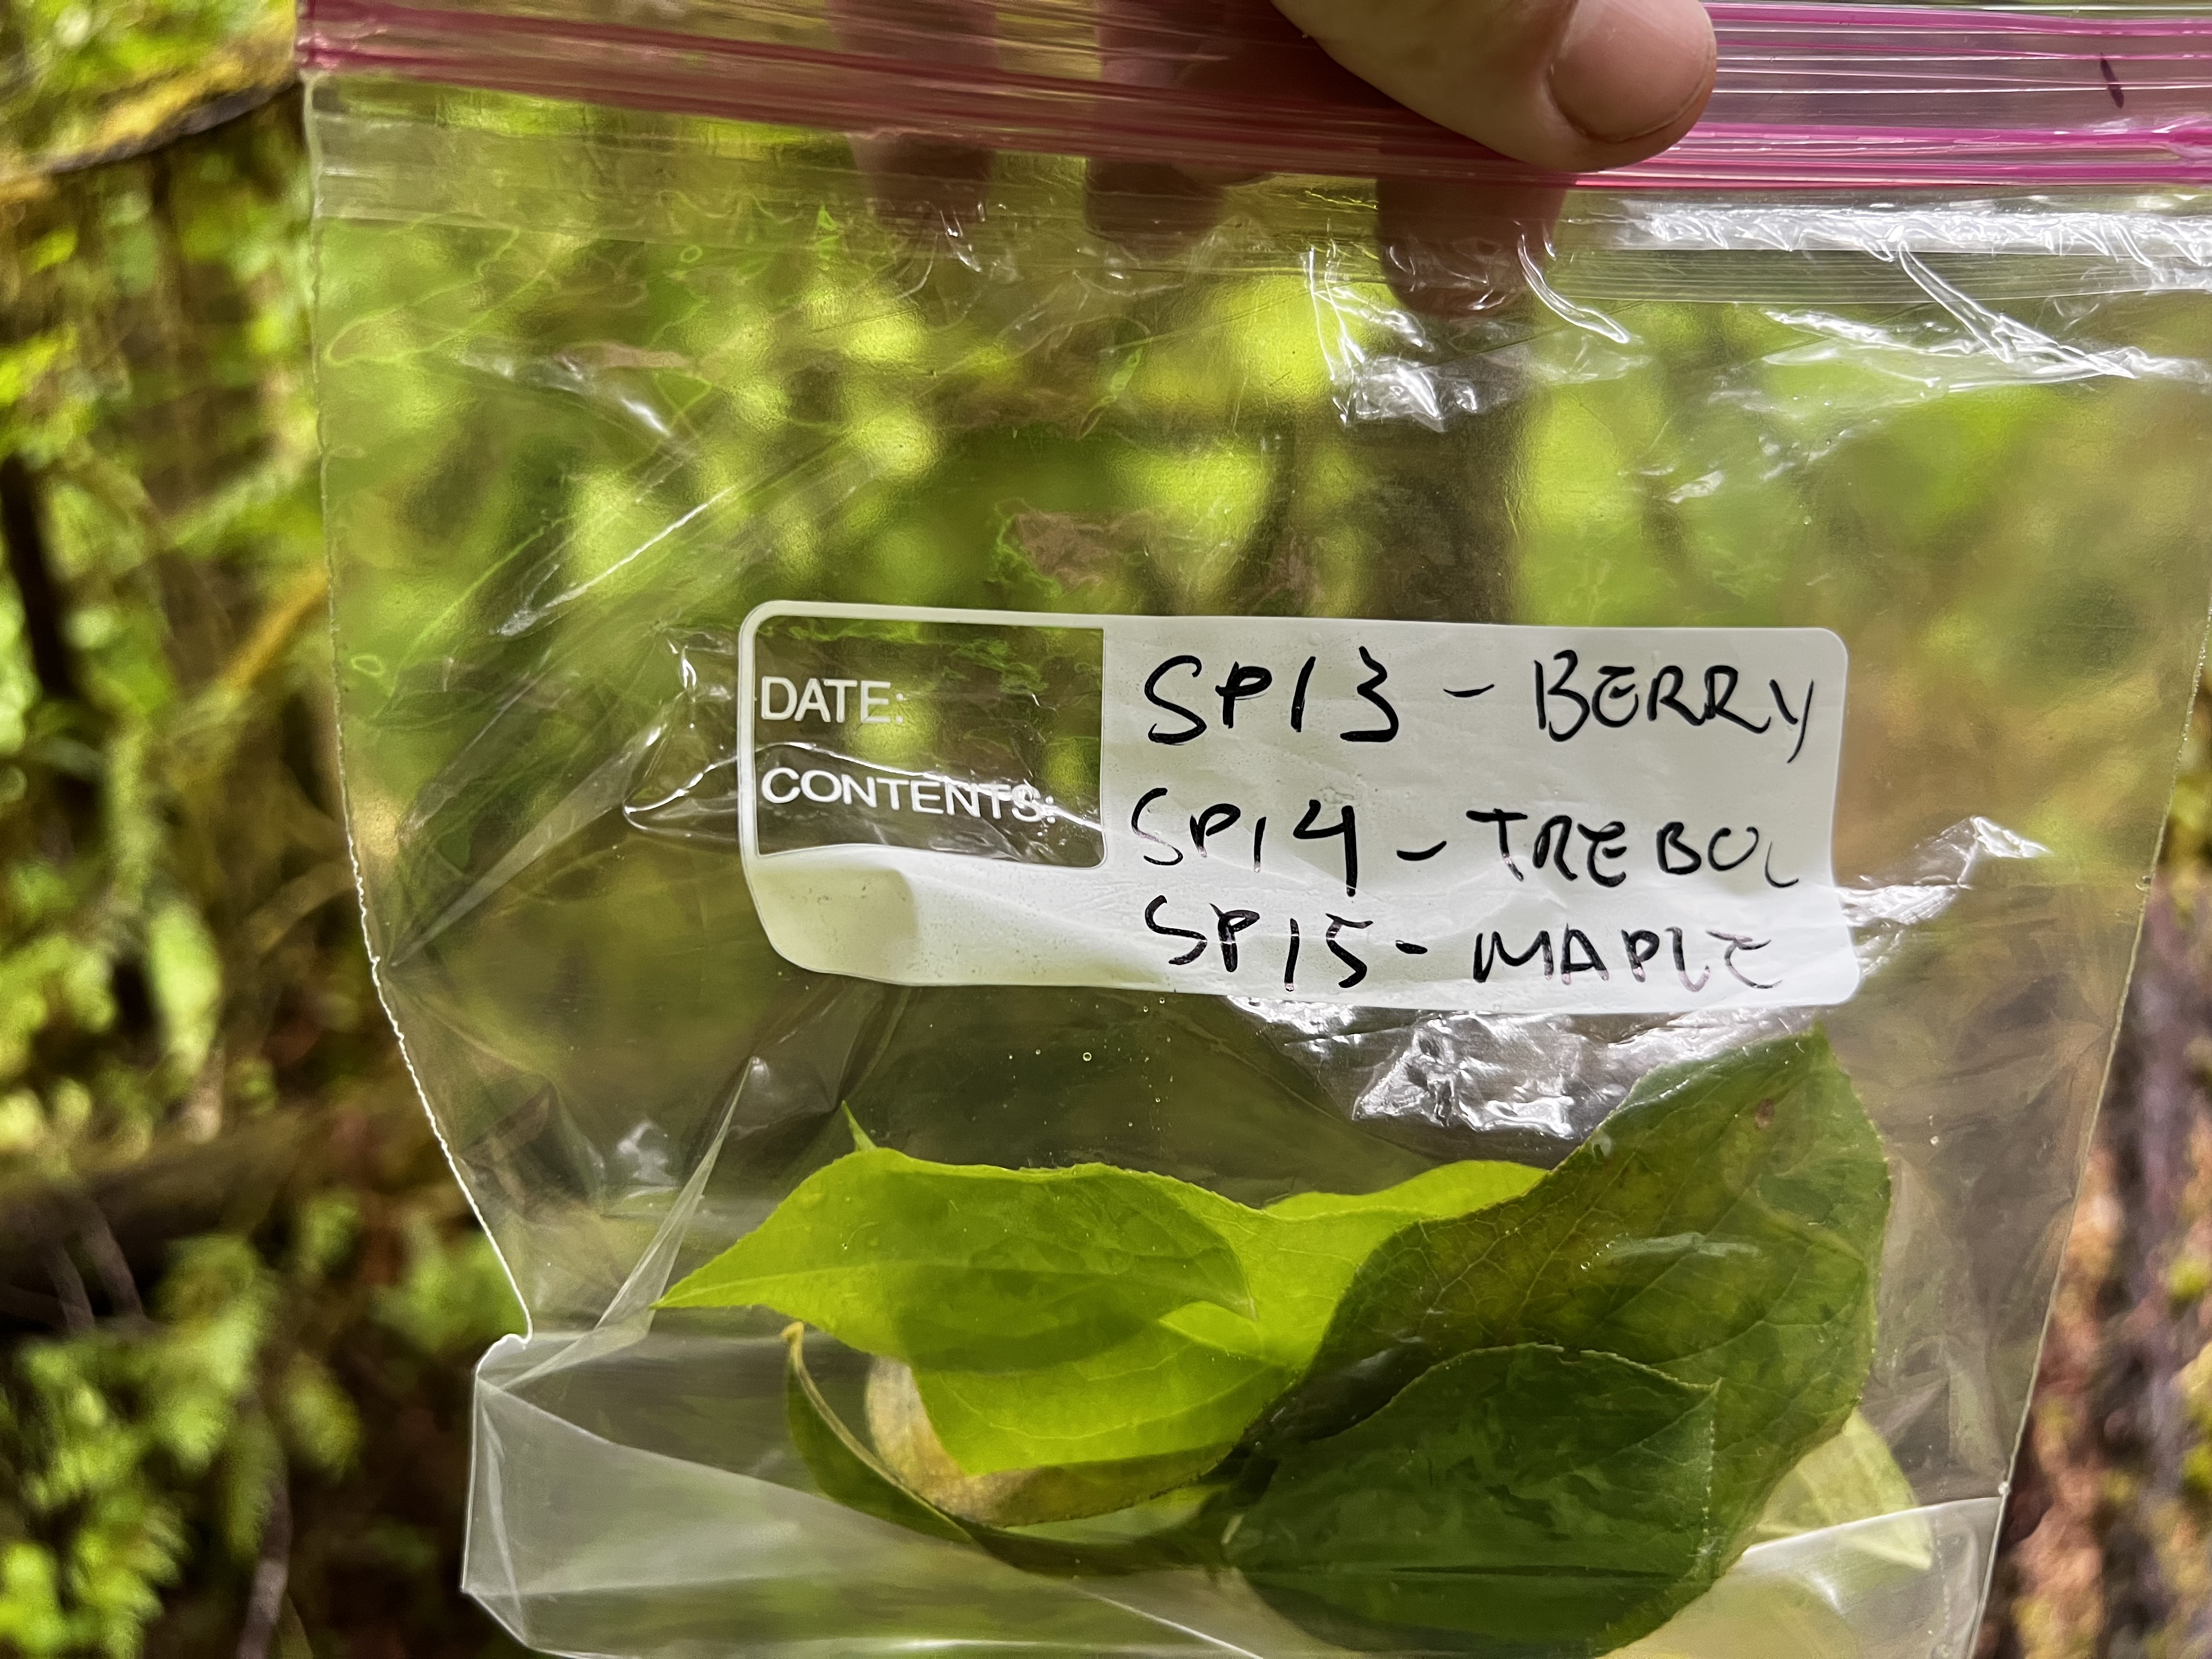 DATE:
CONTENTS:
SP13 - BERRY
SP14 - TREBOL
SP15 - MAPLE